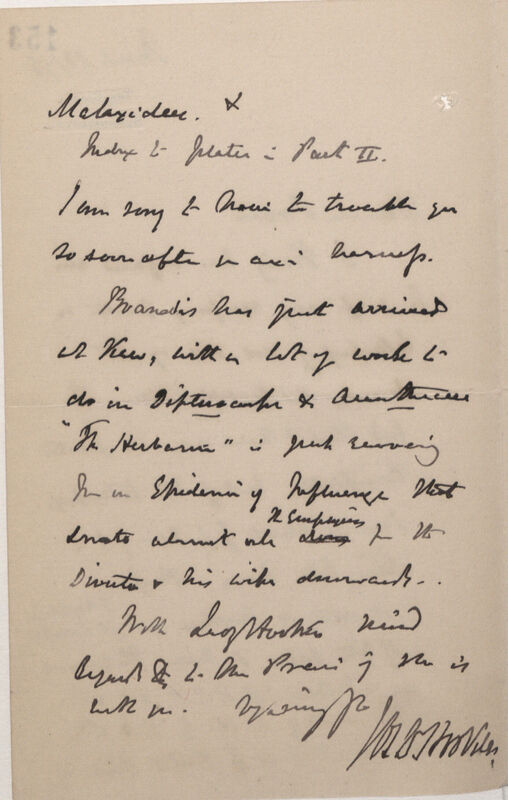 Malaxideae. &
Index to plates in Part II.
I am sorry to have to trouble you
so soon after yr
Brandis has just arrived
at Kew, with a lot of work to
do in Dipterocarps &
"The Herbarium" is just recovering
from an Epidemic of Influenza that
smote almost all the Employees from the
Director & his wife downwards.
With Lady Hooker's kind
regards to Mrs Prain if she is
with you.
Jos D Hooker
153